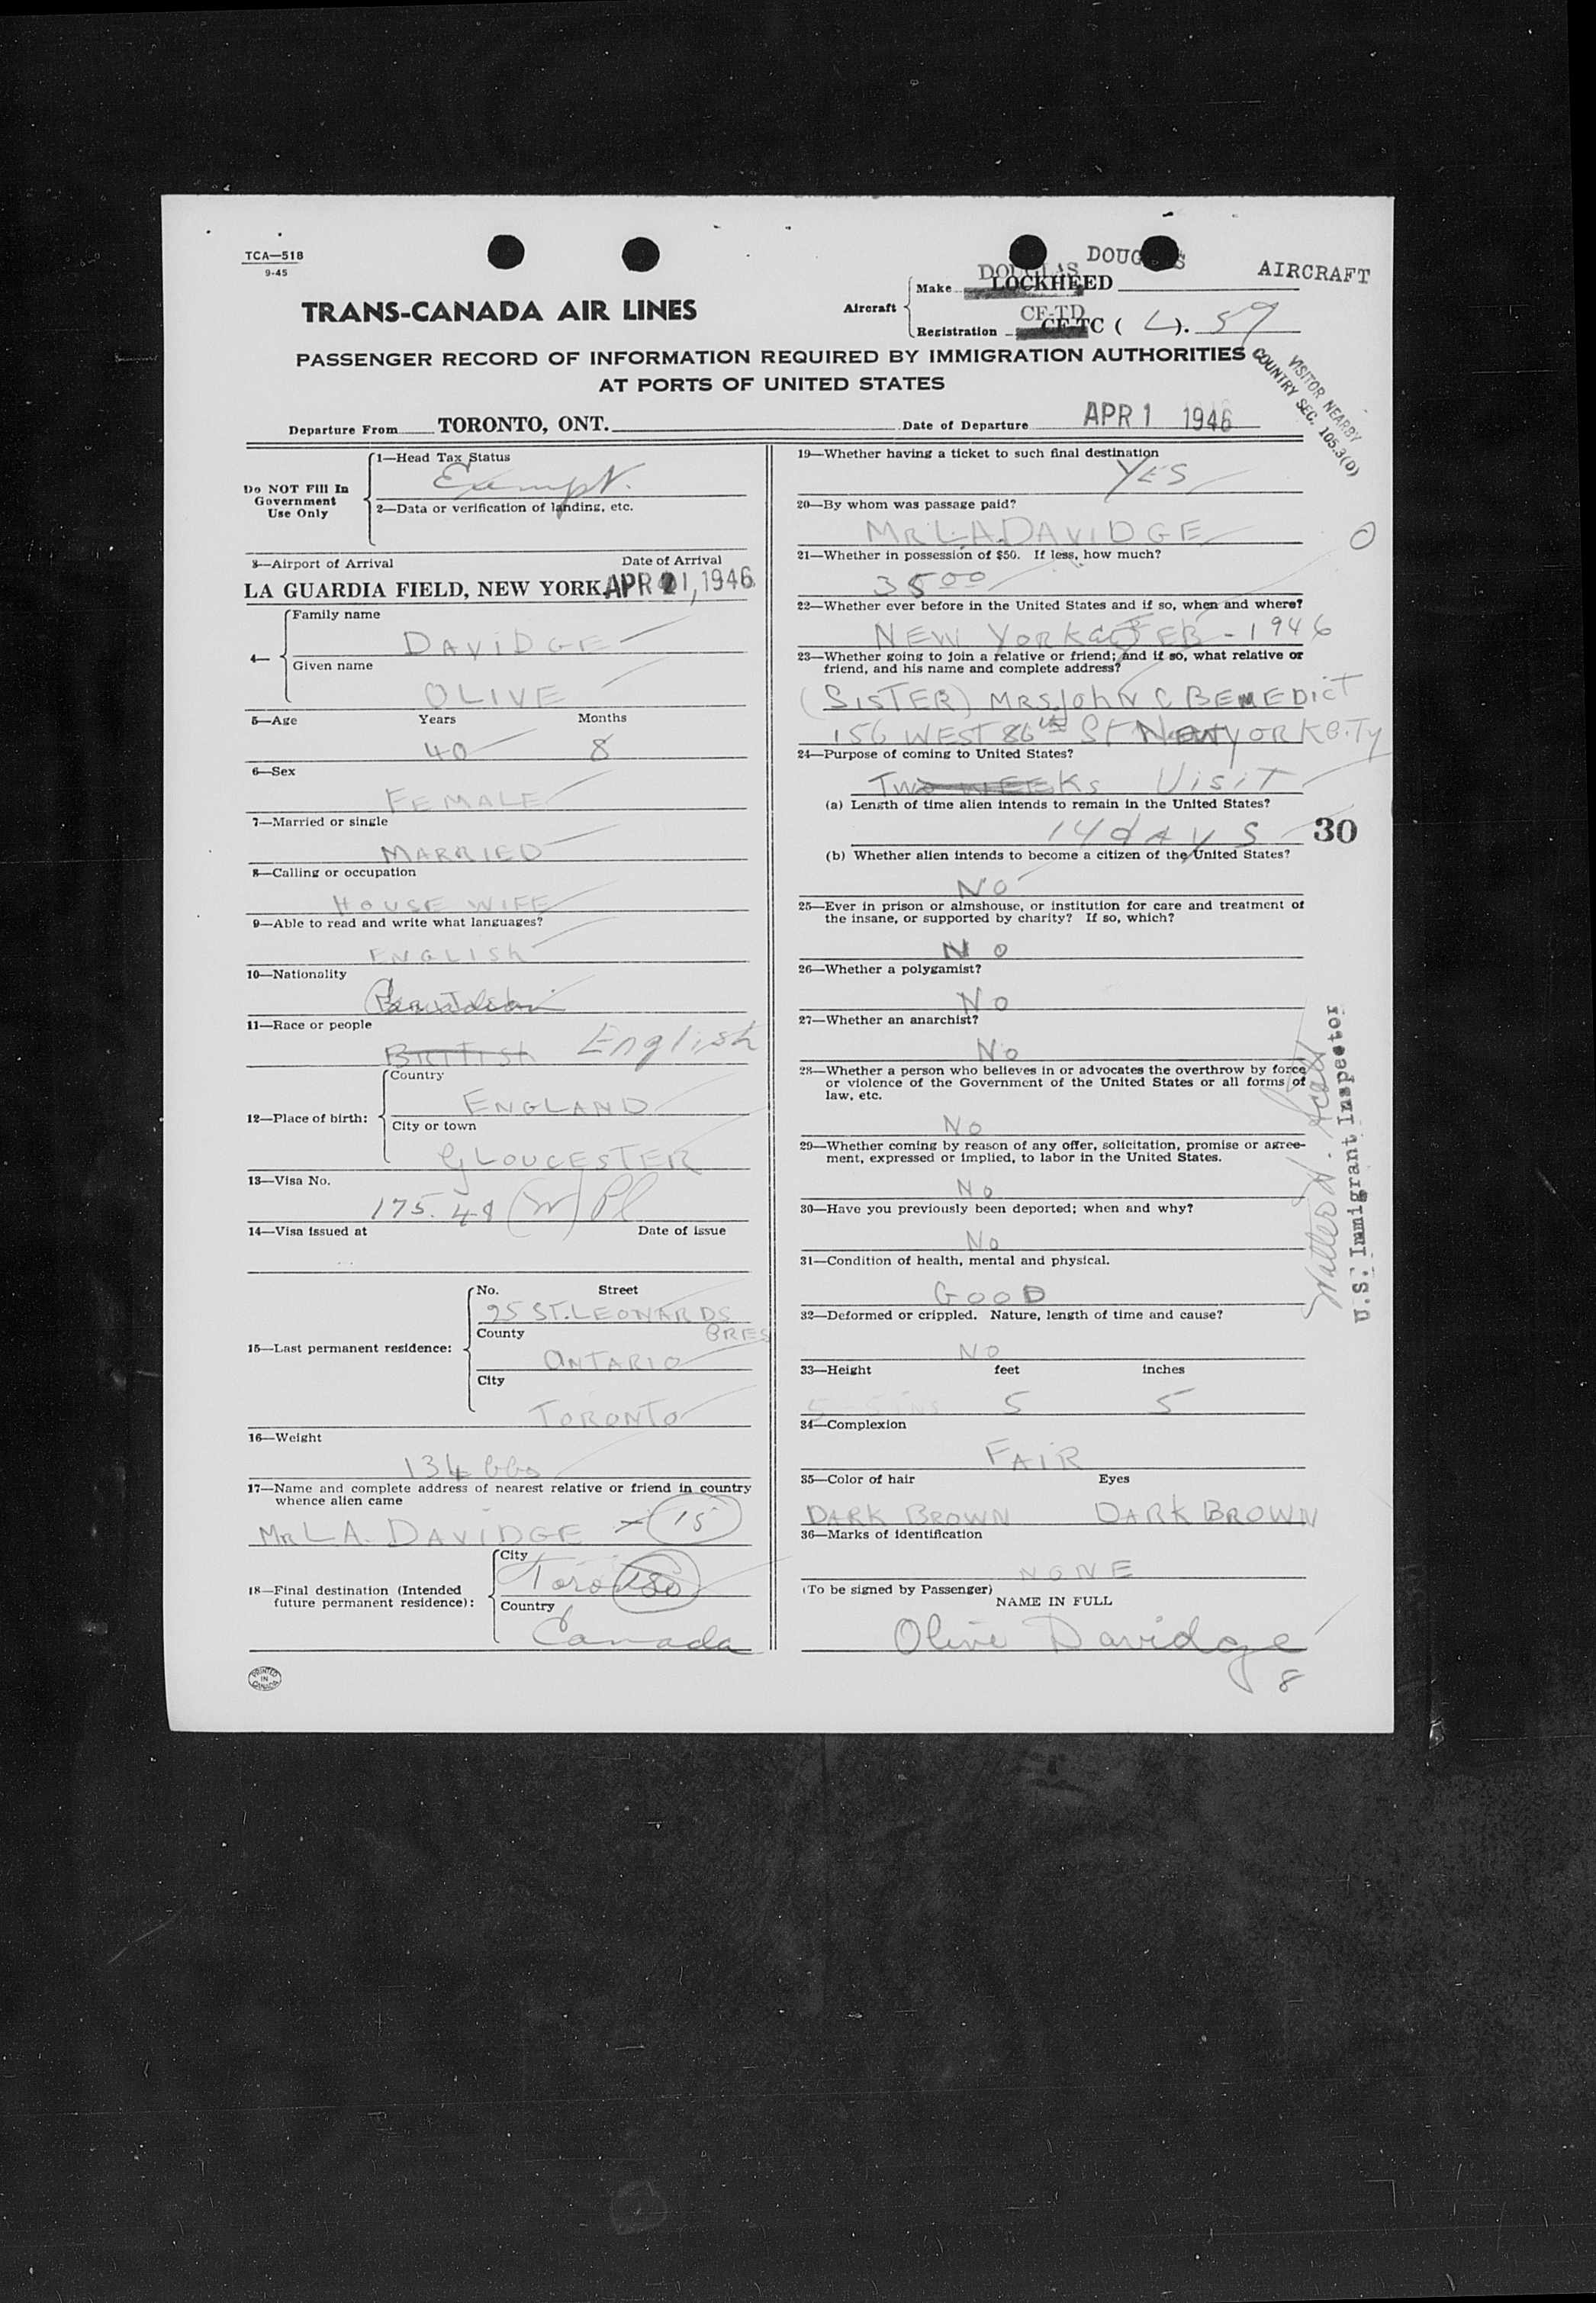 TCA—518
9-45
DOUGLAS AIRCRAFT
DOUGLAS
Aircraft
Make LOCKHEED
CF-TD
Registration CF-TC ( L ). 59
TRANS-CANADA AIR LINES
PASSENGER RECORD OF INFORMATION REQUIRED BY IMMIGRATION AUTHORITIES
AT PORTS OF UNITED STATES
VISITOR NEARBY
COUNTRY SEC. 105.3(D)
Departure From TORONTO, ONT. Date of Departure APR 1 1946
Do NOT Fill In
Government
Use Only
1—Head Tax Status
Exempt.
2—Data or verification of landing, etc.
3—Airport of Arrival Date of Arrival
LA GUARDIA FIELD, NEW YORK APR 1, 1946
4—
Family name
DAVIDGE
Given name
OLIVE
5—Age Years Months
40 8
6—Sex
FEMALE
7—Married or single
MARRIED
8—Calling or occupation
HOUSE WIFE
9—Able to read and write what languages?
ENGLISH
10—Nationality
11—Race or people
British English
12—Place of birth:
Country
ENGLAND
City or town
GLOUCESTER
13—Visa No.
175.48 (W) Pl
14—Visa issued at Date of issue
15—Last permanent residence:
No. Street
95 ST. LEONARDS
CRES
County
ONTARIO
City
TORONTO
16—Weight
134 lbs
17—Name and complete address of nearest relative or friend in country
whence alien came
MR L A. DAVIDGE 15
18—Final destination (Intended
future permanent residence):
City
Toronto
Country
Canada
PRINTED
IN
CANADA
19—Whether having a ticket to such final destination
YES
20—By whom was passage paid?
MR L.A. DAVIDGE
0
21—Whether in possession of $50. If less, how much?
35 00
22—Whether ever before in the United States and if so, when and where?
NEW YORK FEB - 1946
23—Whether going to join a relative or friend; and if so, what relative or
friend, and his name and complete address?
(SISTER) MRS. JOHN C BENEDICT
156 WEST 86th St NEW YORK CITY
24—Purpose of coming to United States?
TWO WEEKS VISIT
(a) Length of time alien intends to remain in the United States?
14 days 30
(b) Whether alien intends to become a citizen of the United States?
NO
25—Ever in prison or almshouse, or institution for care and treatment of
the insane, or supported by charity? If so, which?
NO
26—Whether a polygamist?
No
27—Whether an anarchist?
No
28—Whether a person who believes in or advocates the overthrow by force
or violence of the Government of the United States or all forms of
law, etc.
No
29—Whether coming by reason of any offer, solicitation, promise or agree-
ment, expressed or implied, to labor in the United States.
No
30—Have you previously been deported; when and why?
No
31—Condition of health, mental and physical.
GOOD
32—Deformed or crippled. Nature, length of time and cause?
NO
33—Height feet inches
5 5
34—Complexion
FAIR
35—Color of hair Eyes
DARK BROWN DARK BROWN
36—Marks of identification
NONE
(To be signed by Passenger)
NAME IN FULL
Olive Davidge
8
Walter N.
U.S. Immigrant Inspector